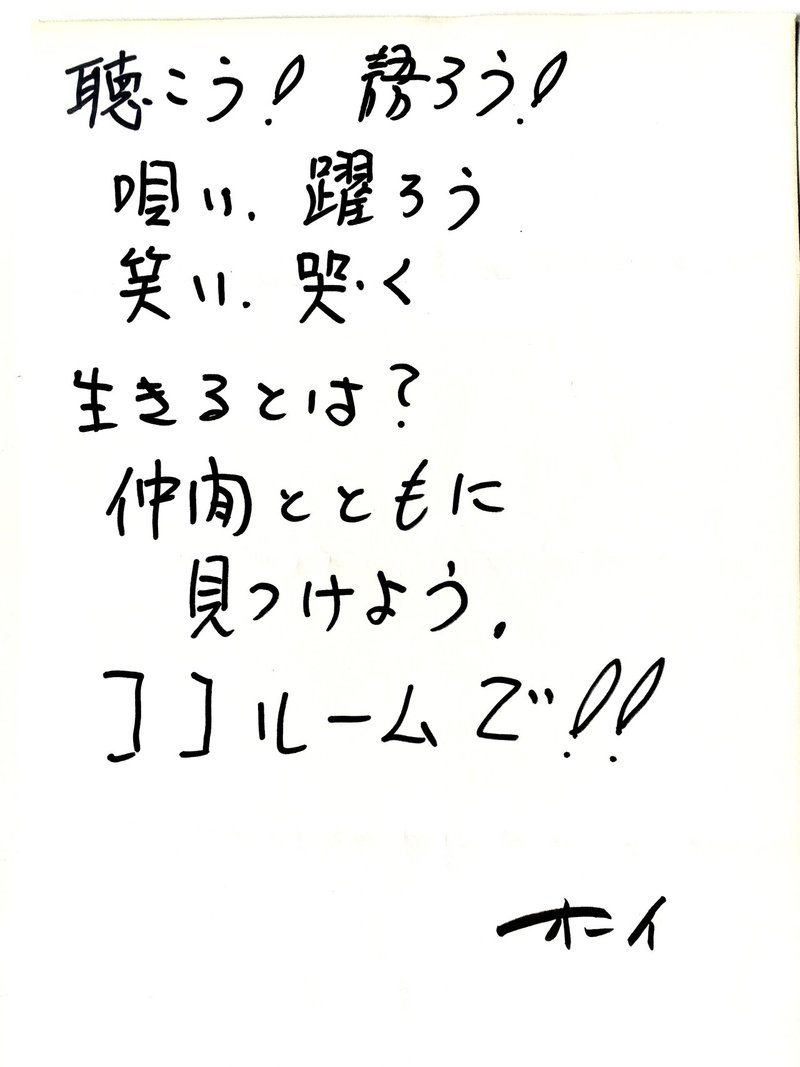 聴こう! 語ろう!
唄い. 躍ろう
笑い. 哭く
生きるとは?
仲間とともに
見つけよう.
ココルームで!!